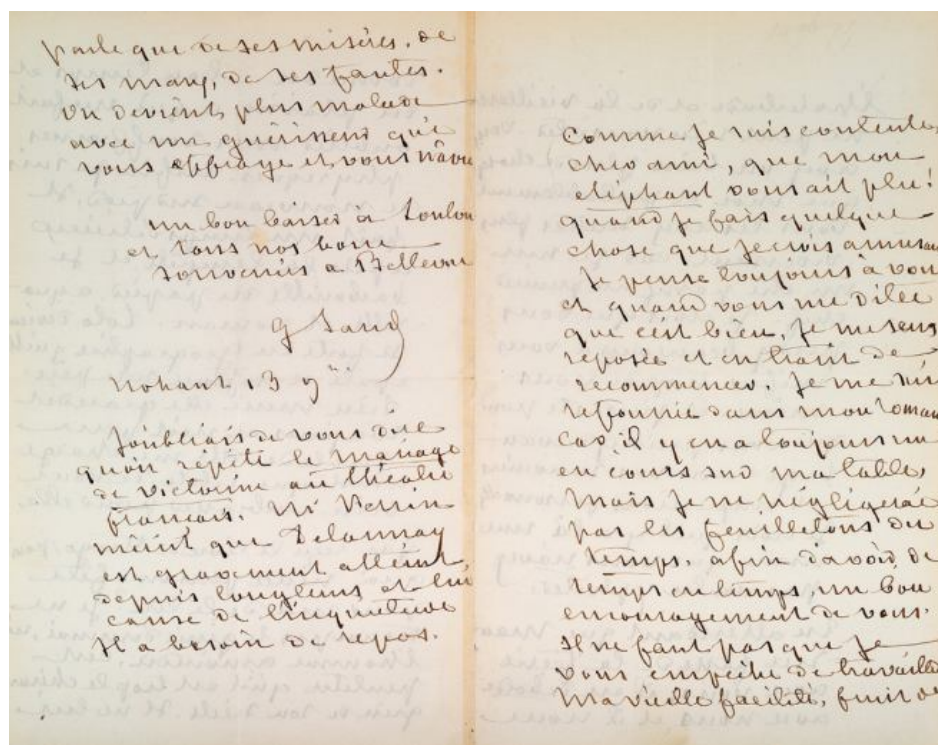 parle que de ses misères, de
ses maux, de ses fautes.
On devient plus malade
avec un guérisseur qui
vous effraye et vous navre
un bon baiser à Loulou
et tous nos bons
souvenirs à Bellevue
G Sand
Nohant 13 9bre
J'oubliais de vous dire
qu'on répète le mariage
de Victorine au théâtre
français. Mr Perrin
m'écrit que Delaunay
est gravement atteint
depuis longtems et lui
cause de l'inquiétude
Il a besoin de repos.
Comme je suis contente,
cher ami, que mon
éléphant vous ait plu!
quand je fais quelque
chose que je crois amusant
je pense toujours à vous
et quand vous me dites
que c'est bien, je me sens
reposée et en train de
recommencer. Je me suis
refourrée dans mon roman
car il y en a toujours un
en cours sur ma table,
mais je ne négligerai
pas les feuilletons du
temps, afin d'avoir de
temps en temps un bon
encouragement de vous.
Il ne faut pas que je
vous empêche de travailler
Ma vieille facilité, fruit de